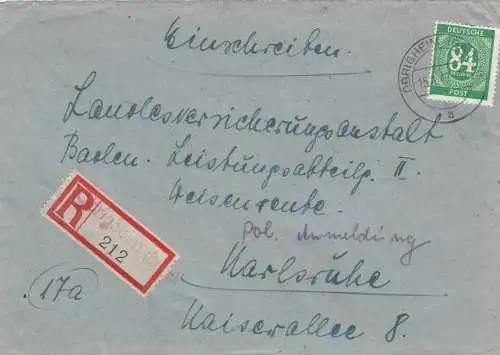 Einschreiben.
DEUTSCHE
84
PFENNIG
POST
OBRIGHEIM
15.
a
Landesversicherungsanstalt
Baden. Leistungsabteilg. II.
Weisenrente.
pol. Anmeldung
R
212
Karlsruhe
17a
Kaiserallee 8.